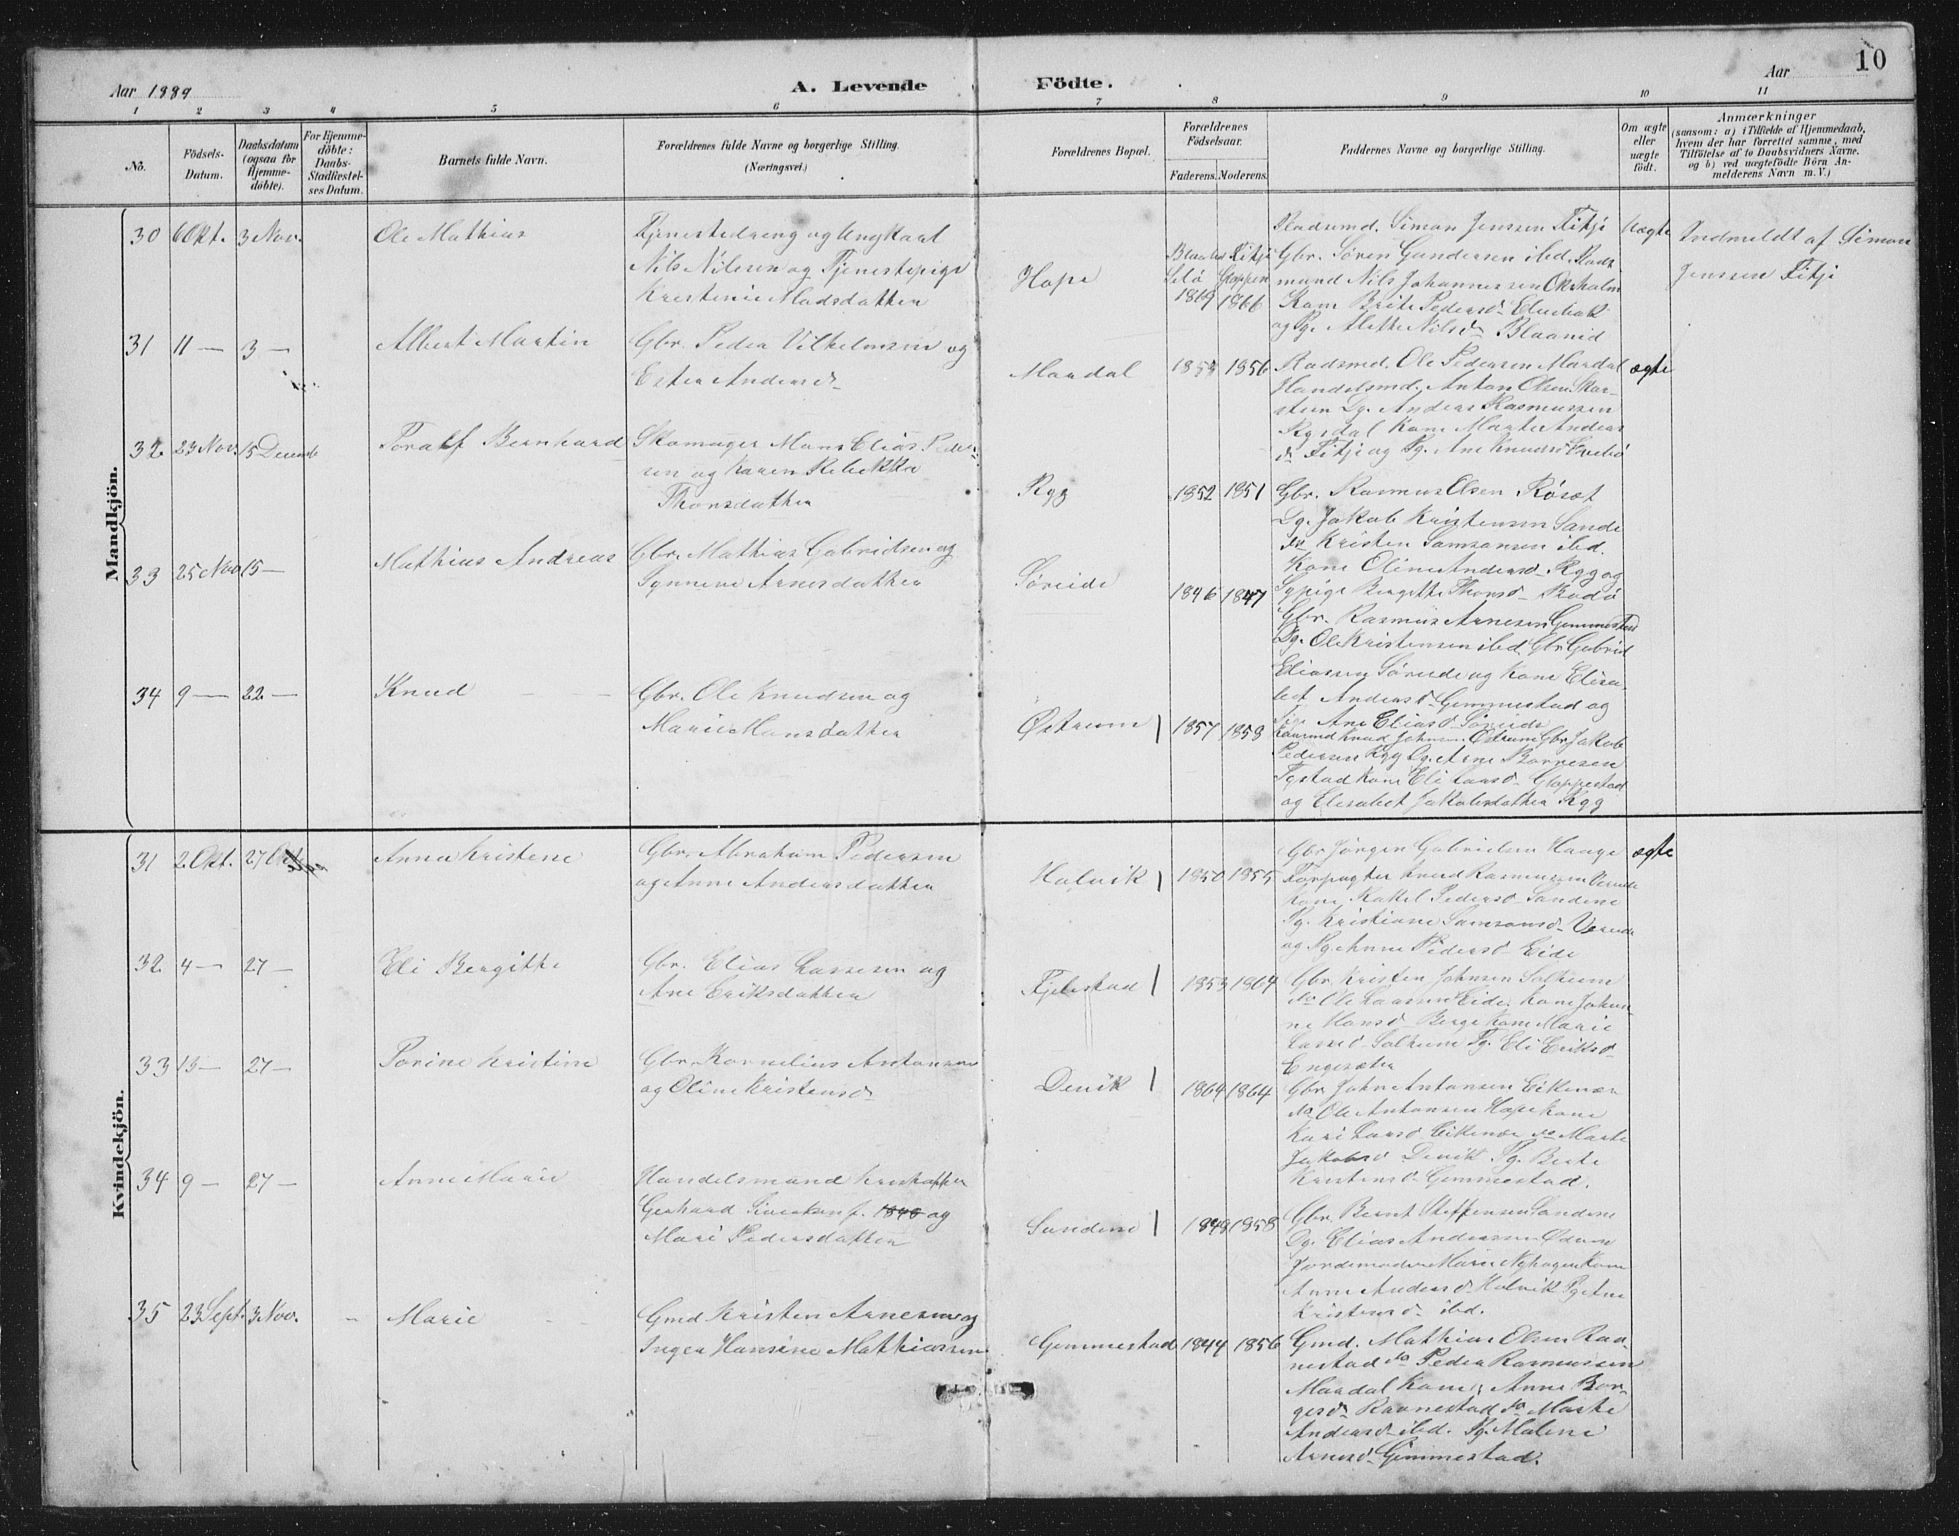 10
Aar 1889
A. Levende Födte.
Aar
1 2 3 4 5 6 7 8 9 10 11
No.
Födsels-Datum.
Daabsdatum (ogsaa for Hjemme-döbte).
For Hjemme-döbte: Daabs-Stadfæstel-ses Datum.
Barnets fulde Navn.
Forældrenes fulde Navne og borgerlige Stilling. (Næringsvei.)
Forældrenes Bopæl.
Forældrenes Födselsaar.
Faderens. Moderens.
Faddernes Navne og borgerlige Stilling.
Om ægte eller uægte födt.
Anmærkninger (saasom: a) i Tilfælde af Hjemmedaab, hvem der har forrettet samme, med Tilföielse af to Daabsvidners Navne. og b) ved uægtefödte Börn An-melderens Navn m. V.)
Mandkjön.
30 6 Okt. 3 Nov. Ole Mathias
Tjenestedreng og Ungkarl
Nils Nilsen og Tjenestepige
Kristense Madsdatter
Hope
1869 1866
Gaardmd. Simon Jenssen Fitje
Gbr. Søren Gundersen ibd.
mand Nils Johannessen
Kone Brite Pedersd
og Pg. Alette Nilsd Blaanid
Uægte
Indmeldt af Simon
Jenssen Fitje
31 11 — 3 — Albert Martin
Gbr. Peder Vilhelmsen og
Ester Andersd
Mardal
1853 1856
Ole Pedersen Mardal
Handelsmd. Anton Olsen Skar-
stein Dg. Anders Rasmussen
Rygsdal Kone Marte Anders
d Fitje og Pg. Ane Knudsd
ægte
32 23 Nov. 15 Decemb
Toralf Bernhard
Skomager Mons Elias Peder-
sen og Karen Rebekka
Thomsdatter
Ryg
1852 1851
Gbr. Rasmus Olsen Røset
Dg. Jakob Kristensen Sande
do Kristen Samsonsen ibd.
Kone Oline Andersd Ryg og
Sypige Bergitte Thomsd
33 25 Nov 15 —
Mathias Andreas
Gbr. Mathias Gabrielsen og
Synneve Arnesdatter
Søreide
1846 1847
Gbr. Rasmus Arnesen Gemmestad
Dg. Ole Kristensen ibd. Gbr Gabriel
Eliassen Søreide og Kone Elisa-
bet Andersd Gemmestad og
Pige Ane Eliasd Søreide
34 9 — 22 — Knud
Gbr. Ole Knudsen og
Marie Monsdatter
Østrem
1857 1858
Kaarmd Knud Johnsen Østrem Gbr Jakob
Pedersen Ryg Dg. Arne
Kone Eli Larsd Gloppestad
og Elisabet Jakobsdatter Ryg
Kvindekjön.
31 2 Okt. 27 Okt
Anna Kristene
Gbr. Abraham Pedersen
og Anne Andersdatter
Holvik
1850 1855
Gbr Jørgen Gabrielsen Hauge
Forpagter Knud Rasmussen Vereide
Kone Rakel Pedersd Sandene
Pg. Kristiane Samsonsd Vereide
og Pg. Anne Pedersd Eide
ægte
32 4 — 27 — Eli Bergitte
Gbr. Elias Lassesen og
Ane Eriksdatter
Fjelestad
1853 1864
Gbr. Kristen Johnsen Solheim
do Ole Larssen Eide. Kone Johan-
ne Hansd Berge Kone Marie
Lassed Solheim Pg. Eli Eriksd
Engesæter
33 13 — 27 — Torine Kristine
Gbr. Kornelius Antonsen
og Oline Kristensd
Devik
1864 1864
Gbr John Antonsen Eikenæs
do Ole Antonsen Hope Kone
Kari Larsd Eikenæs do Marte
Jakobsd Devik Pg. Berte
Kristensd Gemmestad.
34 9 — 27 — Anne Marie
Handelsmand Kristoffer
Gerhard Sivertsen f. 1848 og
Mari Pedersdatter
Sandene
1848 1858
Gbr. Bernt Steffensen Sandene
Dg. Elias Andersen
Jordemoder Marie Nyhagen Kone
Anne Andersd Holvik Pg Ane
Kristensd ibd.
35 23 Sept. 3 Nov. Marie
Gmd Kristen Arnesen og
Inger Hansine Mathiassen
Gemmestad
1844 1856
Gmd. Mathias Olsen Rau-
nestad do Peder Rasmussen
Mardal Kone Anne Bør-
gesd Raunestad do Marte
Andersd ibd. Pg. Malene
Arnesd Gemmestad.